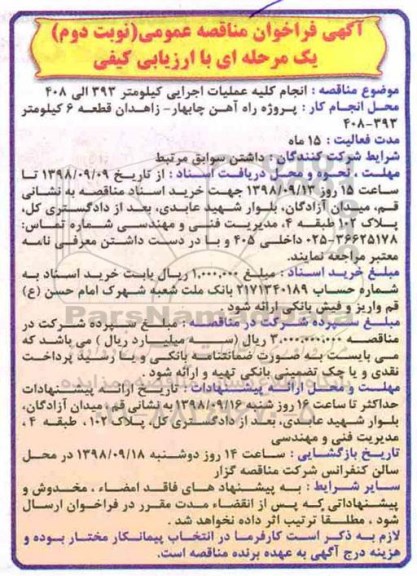 آگهی فراخوان مناقصه عمومی(نوبت دوم)
یک مرحله ای با ارزیابی کیفی
موضوع مناقصه : انجام کلیه عملیات اجرایی کیلومتر ۳۹۳ الی ۴۰۸
محل انجام کار : پروژه راه آهن چابهار- زاهدان قطعه ۶ کیلومتر
۳۹۳-۴۰۸
مدت فعالیت : ۱۵ ماه
شرایط شرکت کنندگان : داشتن سوابق مرتبط
مهلت ، نحوه و محل دریافت اسناد : از تاریخ ۱۳۹۸/۰۹/۰۹ تا
ساعت ۱۵ روز ۱۳۹۸/۰۹/۱۳ جهت خرید اسناد مناقصه به نشانی
قم، میدان آزادگان، بلوار شهید عابدی، بعد از دادگستری کل،
پلاک ۱۰۲ طبقه ۴، مدیریت فنی و مهندسی شماره تماس:
۳۶۶۲۵۱۷۸-۰۲۵ داخلی ۴۰۵ و با در دست داشتن معرفی نامه
معتبر مراجعه نمایند.
مبلغ خرید اسناد : مبلغ ۱.۰۰۰.۰۰۰ ریال بابت خرید اسناد به
شماره حساب ۲۱۷۱۳۴۰۱۸۹ بانک ملت شعبه شهرک امام حسن (ع)
قم واریز و فیش بانکی ارائه شود .
مبلغ سپرده شرکت در مناقصه : مبلغ سپرده شرکت در
مناقصه ۳.۰۰۰.۰۰۰.۰۰۰ ریال (سه میلیارد ریال ) می باشد که
می بایست به صورت ضمانتنامه بانکی و یا رسید پرداخت
نقدی و یا چک تضمینی بانکی تهیه و ارائه شود .
مهلت و محل ارائه پیشنهادات : تاریخ ارائه پیشنهادات
حداکثر تا ساعت ۱۶ روز شنبه ۱۳۹۸/۰۹/۱۶ به نشانی قم، میدان آزادگان،
بلوار شهید عابدی، بعد از دادگستری کل، پلاک ۱۰۲، طبقه ۴ ،
مدیریت فنی و مهندسی
تاریخ بازگشایی : ساعت ۱۴ روز دوشنبه ۱۳۹۸/۰۹/۱۸ در محل
سالن کنفرانس شرکت مناقصه گزار
سایر شرایط : به پیشنهاد های فاقد امضاء ، مخدوش و
پیشنهاداتی که پس از انقضاء مدت مقرر در فراخوان ارسال
شود ، مطلقا ترتیب اثر داده نخواهد شد .
لازم به ذکر است کارفرما در انتخاب پیمانکار مختار بوده و
هزینه درج آگهی به عهده برنده مناقصه است.
ParsNamadData